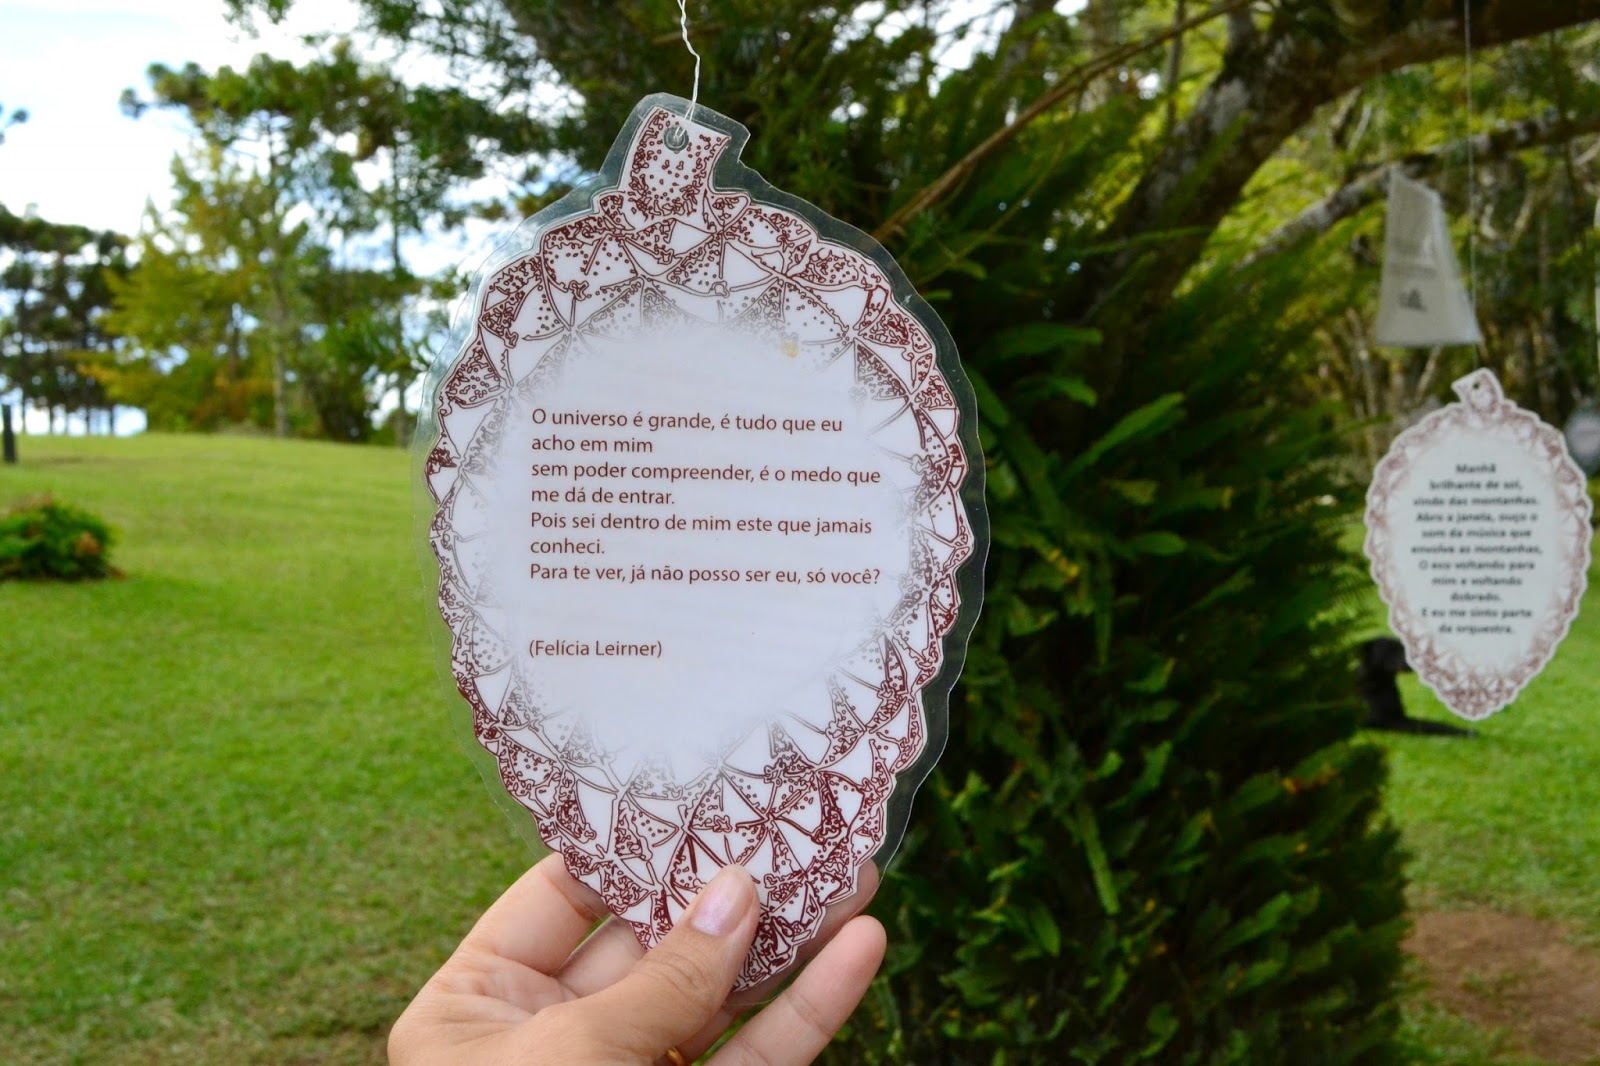 O universo é grande, é tudo que eu
acho em mim
sem poder compreender, é o medo que
me dá de entrar.
Pois sei dentro de mim este que jamais
conheci.
Para te ver, já não posso ser eu, só você?
(Felícia Leirner)
Manhã
brilhante de sol,
vindo das montanhas.
Abro a janela, ouço o
som da música que
envolve as montanhas,
O eco voltando para
mim e voltando
dobrado.
E eu me sinto parte
da orquestra.